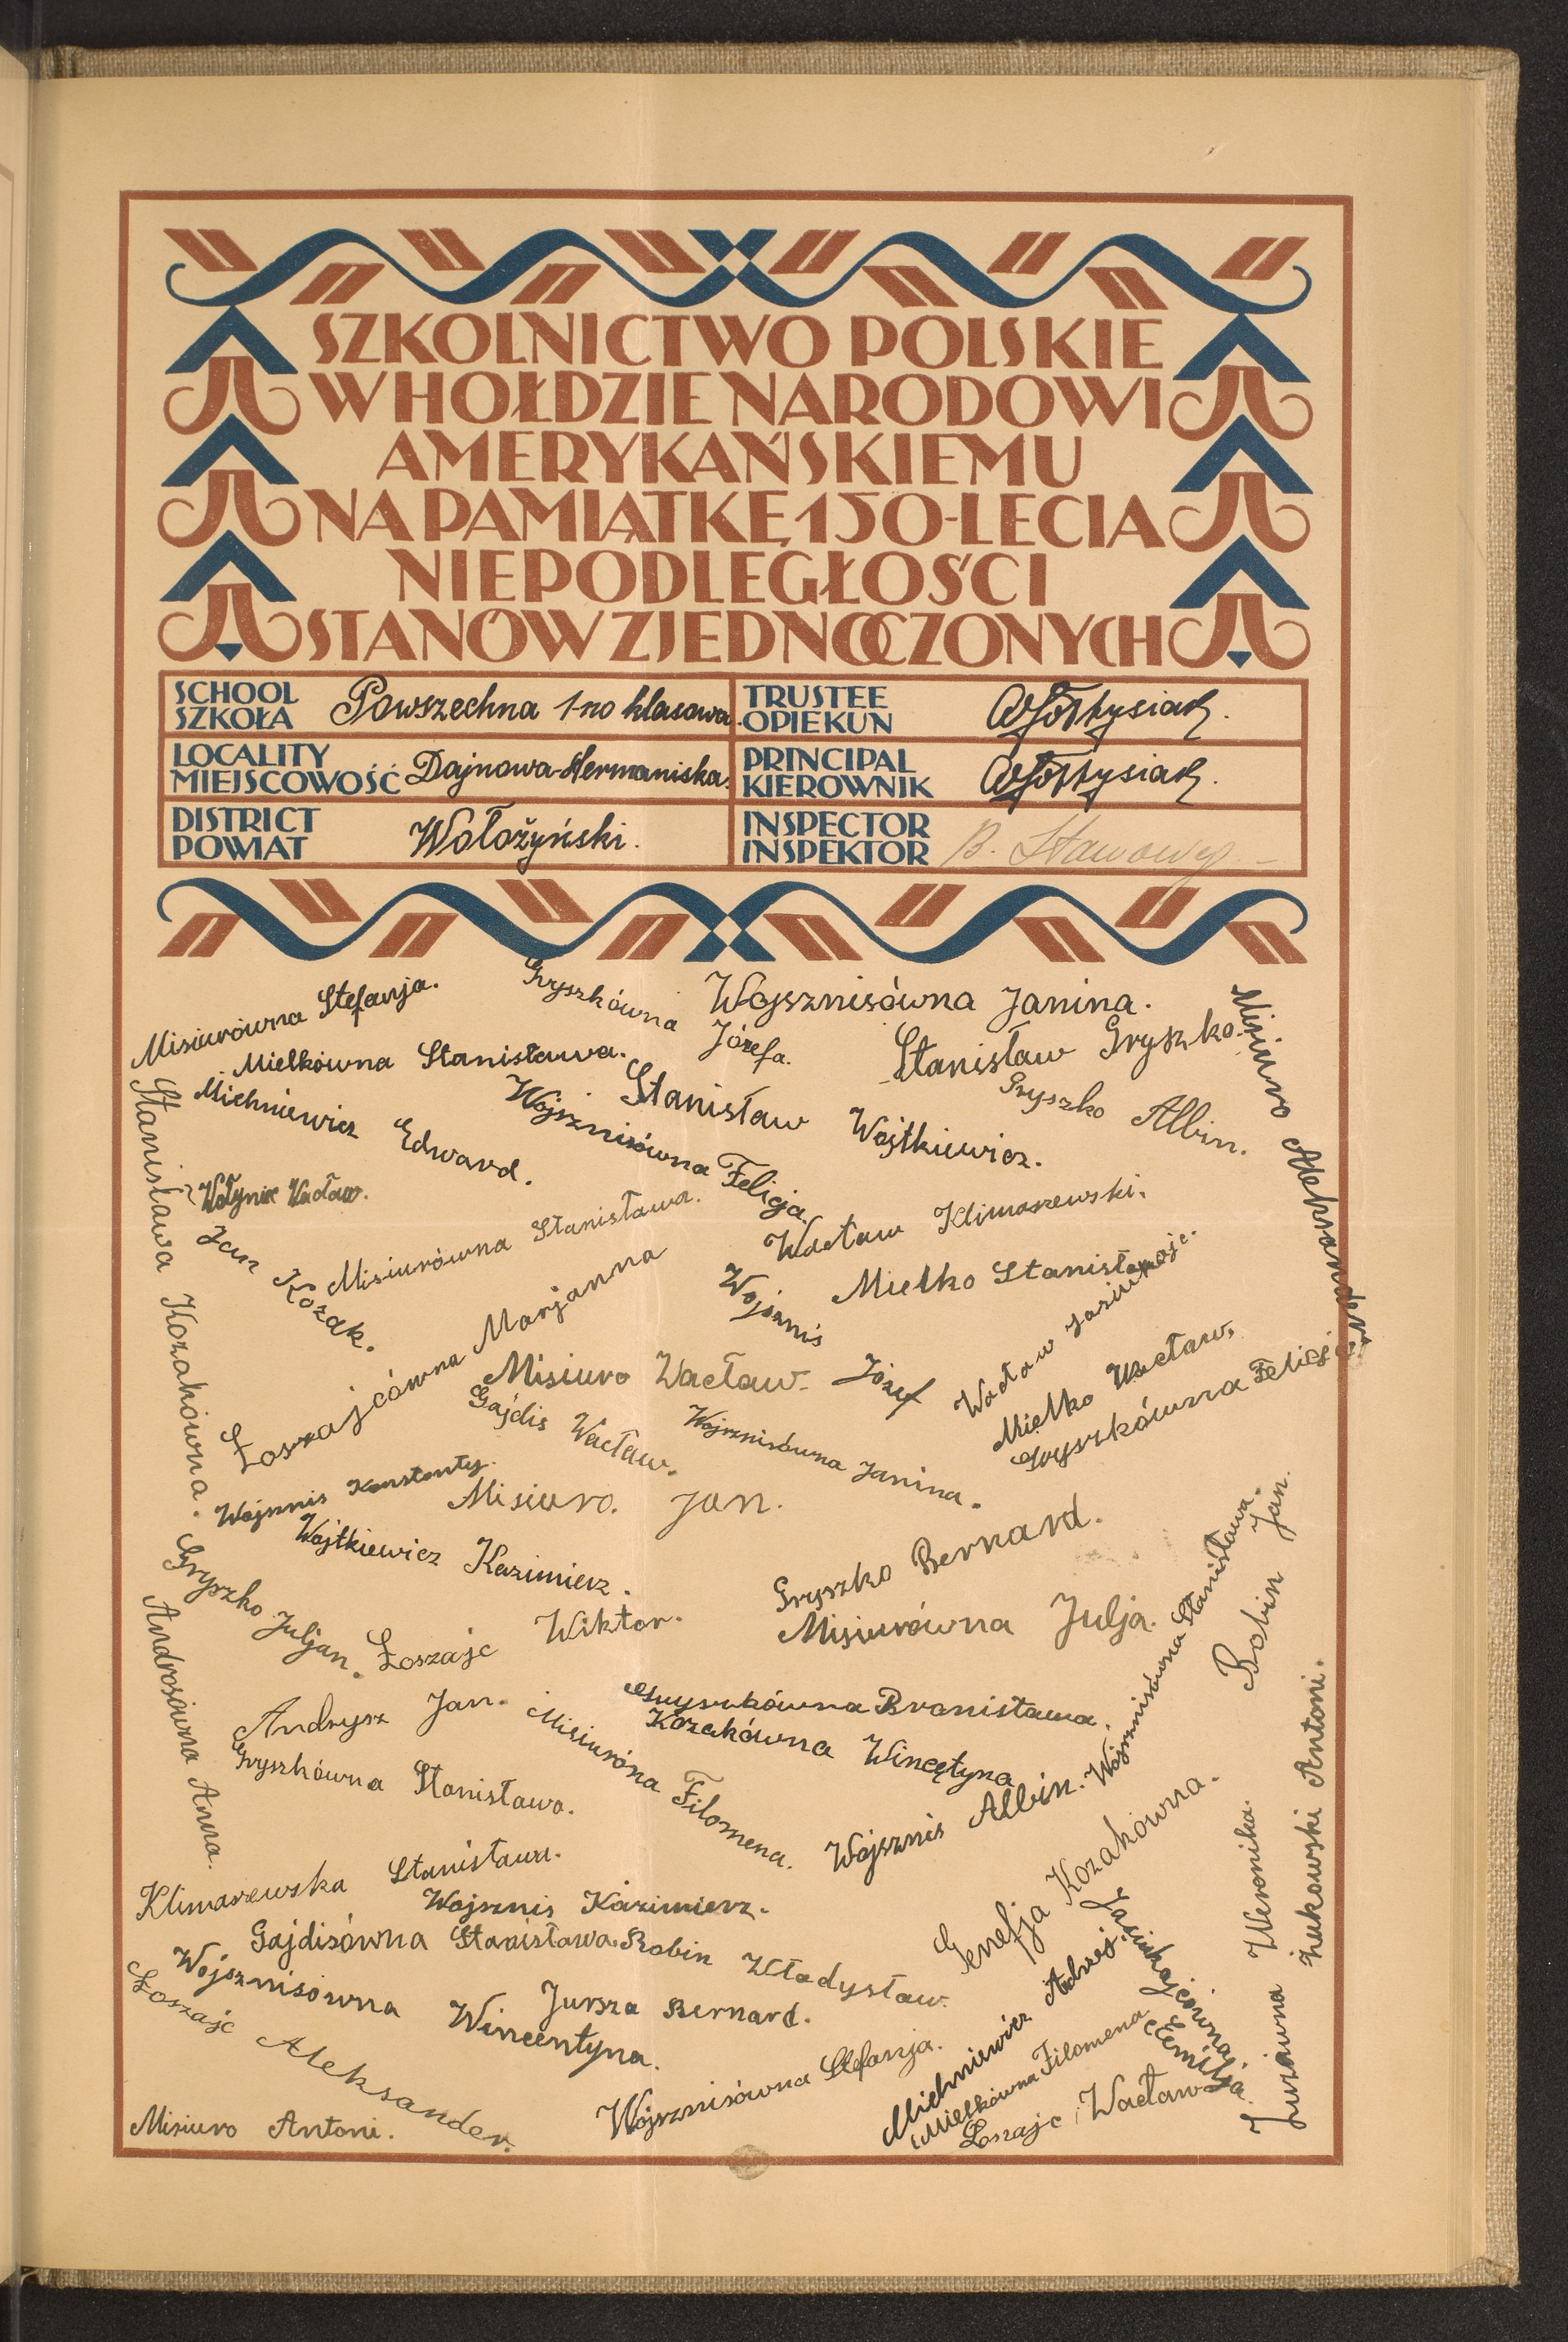 SZKOLNICTWO POLSKIE
W HOŁDZIE NARODOWI
AMERYKAŃSKIEMU
NA PAMIĄTKĘ 150-LECIA
NIEPODLEGŁOŚCI
STANÓW ZJEDNOCZONYCH
SCHOOL
SZKOŁA
Powszechna 1-no klasowa.
TRUSTEE
OPIEKUN
LOCALITY
MIEJSCOWOŚĆ
Dajnowa-Hermaniska.
PRINCIPAL
KIEROWNIK
DISTRICT
POWIAT
Wołożyński.
INSPECTOR
INSPEKTOR
Misiurówna Stefanja.
Gryszkówna Józefa.
Wojsznisówna Janina.
Mielkówna Stanisława.
Stanisław Gryszko.
Misiuro Aleksander.
Michniewicz Edward.
Wojsznisówna Felicja.
Stanisław Wojtkiewicz.
Gryszko Albin.
Stanisława Kozakówna.
Wołynie Wacław.
Jan Kozak.
Misiurówna Stanisława.
Wacław Klimaszewski.
Mielko Stanisław
Wojsznis Józef
Łoszajcówna Marjanna
Misiuro Wacław.
Wacław
Mielko Wacław.
Gryszkówna Felicja
Gajdis Wacław.
Wojsznisówna Janina.
Wojsznis Konstanty.
Misiuro. Jan.
Wojtkiewicz Kazimierz.
Gryszko Bernard.
Gryszko Juljan.
Łoszajc Wiktor.
Misiurówna Julja.
Wojsznisówna Stanisława.
Bobin Jan.
Androsówna Anna.
Andrysz Jan.
Misiuróna Filomena.
Gryszkówna Bronisława.
Kozakówna Wincętyna
Gryszkówna Stanisława.
Wojsznis Albin.
Klimaszewska Stanisława.
Wojsznis Kazimierz.
Genefja Kozakówna.
Żukowski Antoni.
Gajdisówna Stanisława.
Bobin Władysław.
Jursza Bernard.
Wojsznisówna Wincentyna.
Łoszajc Aleksander.
Misiuro Antoni.
Wojsznisówna Stefanja.
Michniewicz Andrzej.
Mielkówna Filomena
Łoszajc Wacław
Emilja.
Weronika.